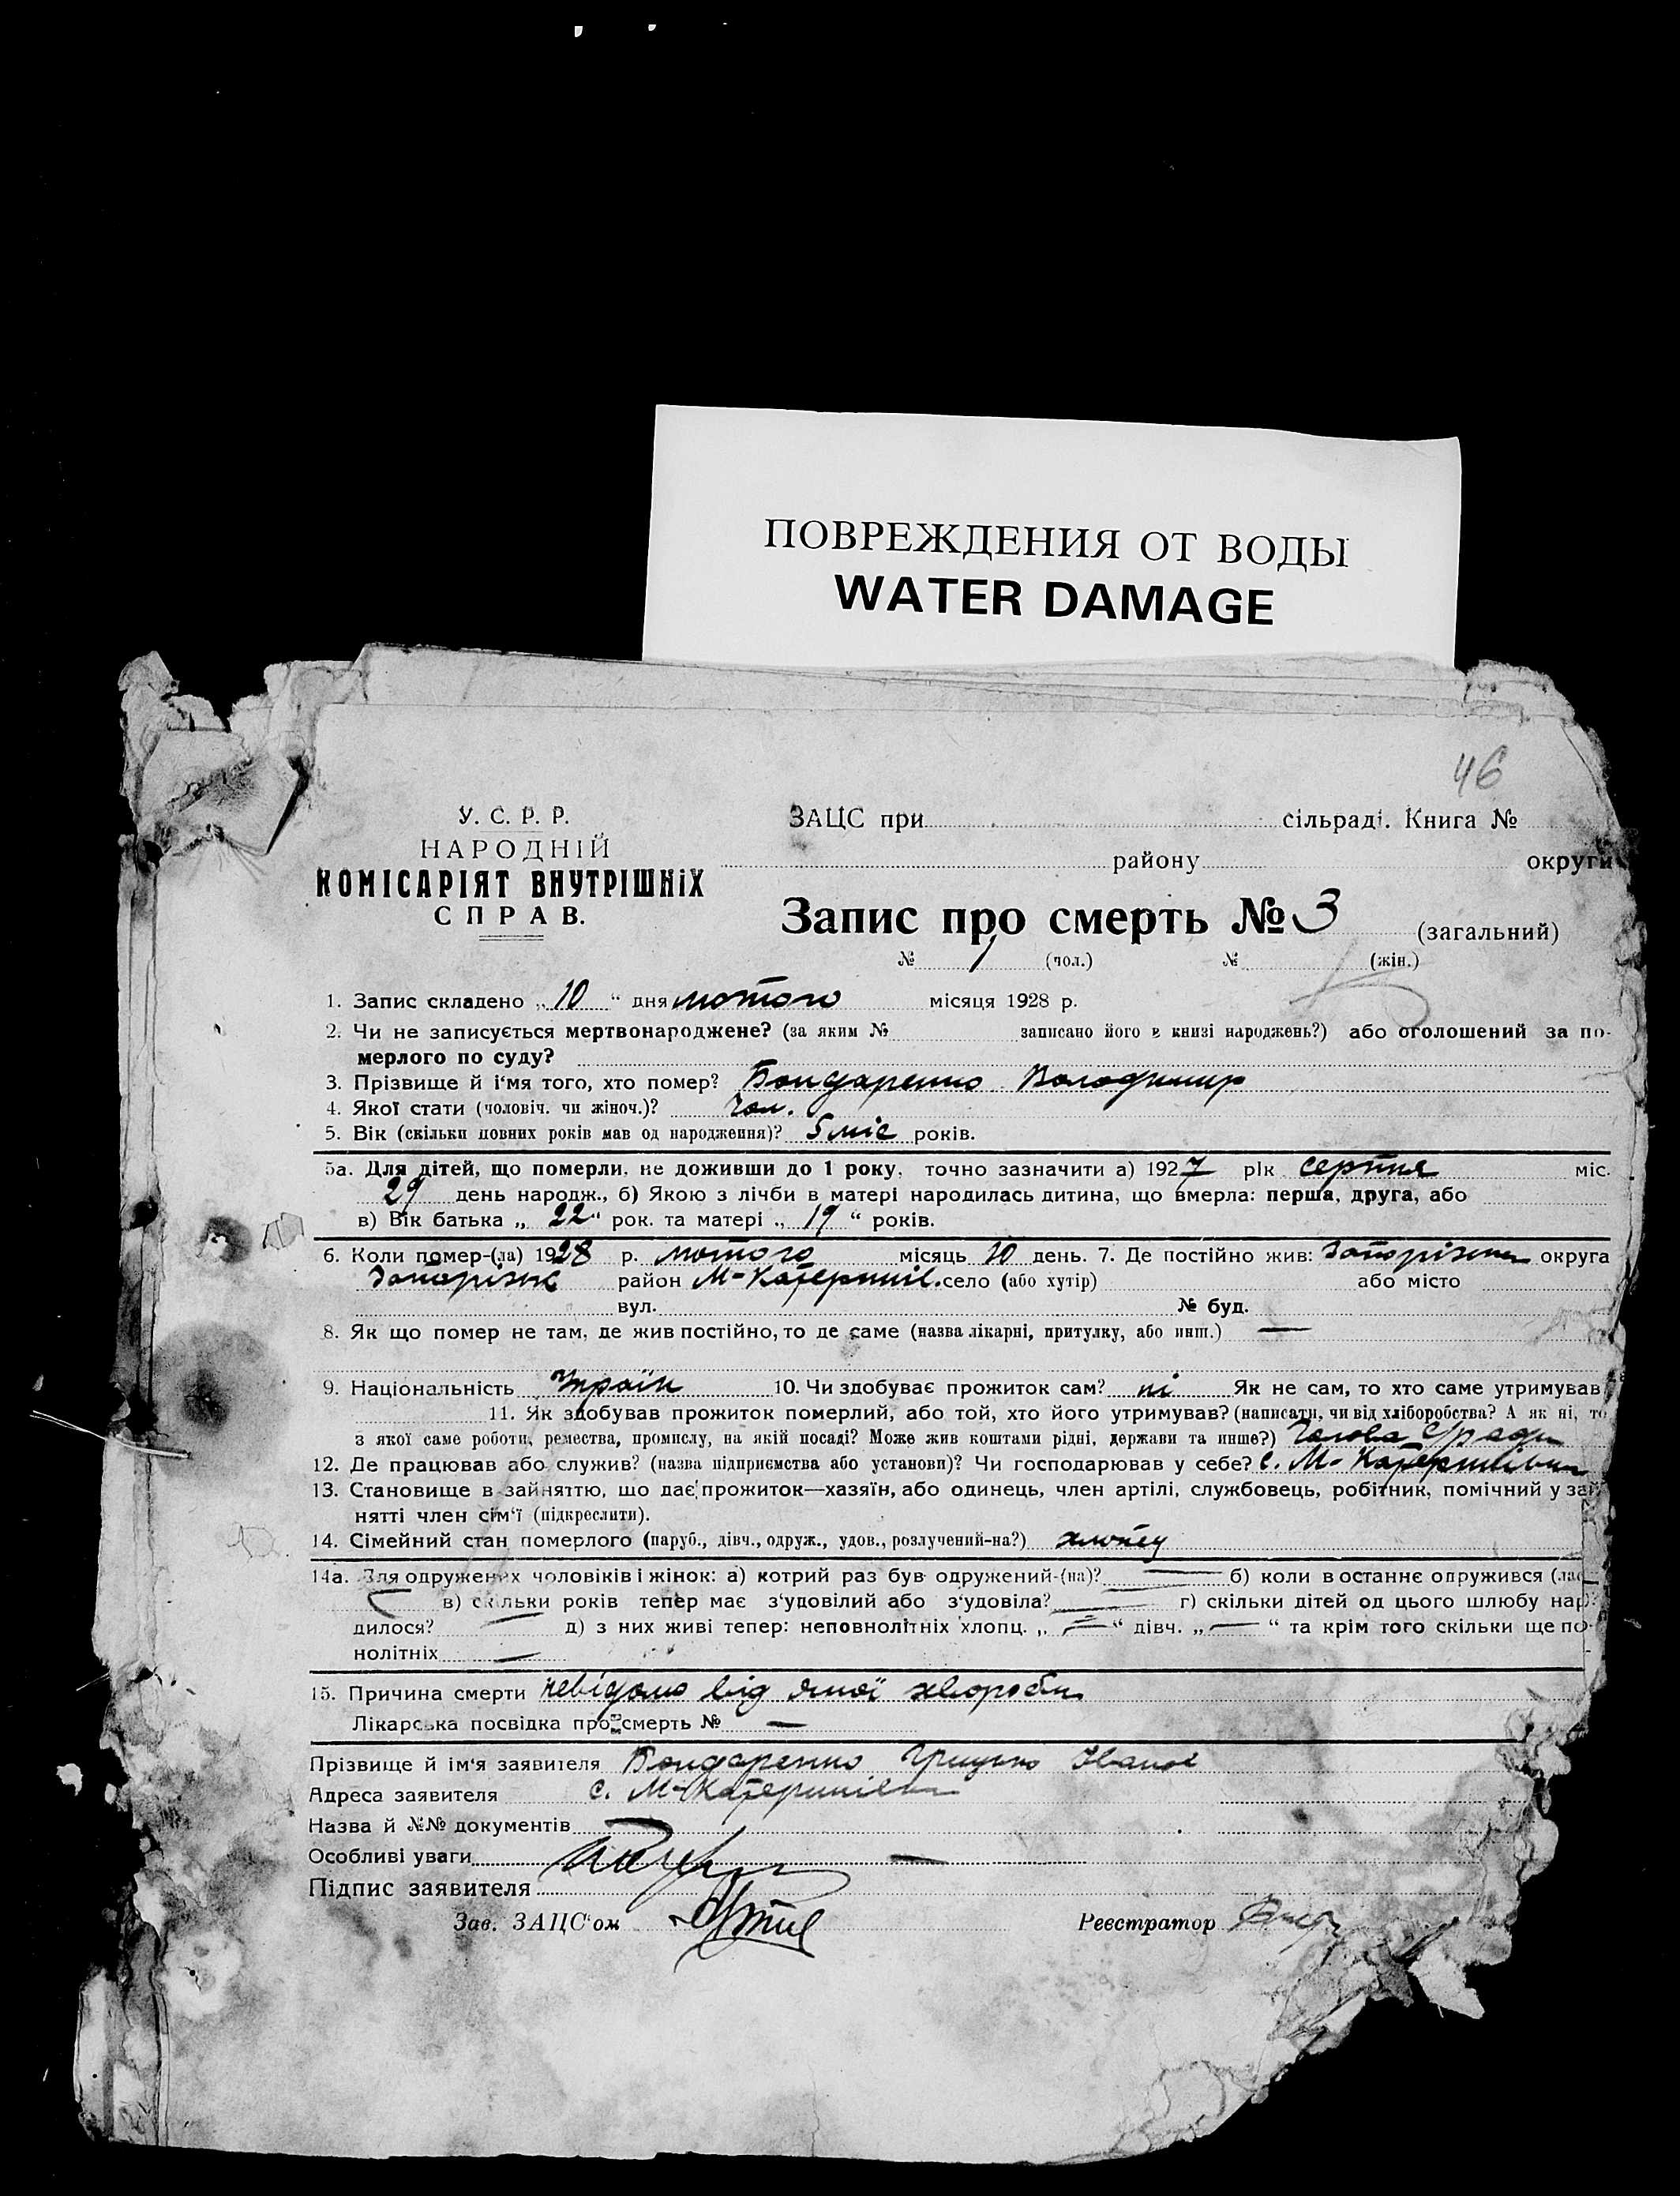 ПОВРЕЖДЕНИЯ ОТ ВОДЫ
WATER DAMAGE
46
У. С. Р. Р.
НАРОДНІЙ
КОМІСАРІЯТ ВНУТРІШНІХ
СПРАВ.
ЗАЦС при сільраді. Книга №
району округи
Запис про смерть № 3 (загальний)
№ 1 (чол.) № (жін.)
1. Запис складено „ 10 “ дня лютого місяця 1928 р.
2. Чи не записується мертвонароджене? (за яким № записано його в книзі народжень?) або оголошений за по-
мерлого по суду?
3. Прізвище й і‘мя того, хто помер? Бондаренко Володимир
4. Якої стати (чоловіч. чи жіноч.)? Чол.
5. Вік (скільки повних років мав од народження)? 5 міс років.
5а. Для дітей, що померли, не доживши до 1 року, точно зазначити а) 1927 рік серпня міс.
29 день народж., б) Якою з лічби в матері народилась дитина, що вмерла: перша, друга, або
в) Вік батька „ 22 “ рок. та матері „ 19 “ років.
6. Коли помер-(ла) 1928 р. лютого місяць 10 день. 7. Де постійно жив: Запорізька округа
Запорізьк район М-Катеринів. село (або хутір) або місто
вул. № буд.
8. Як що помер не там, де жив постійно, то де саме (назва лікарні, притулку, або инш.) —
9. Національність Україн 10. Чи здобуває прожиток сам? ні Як не сам, то хто саме утримував
11. Як здобував прожиток померлий, або той, хто його утримував? (написати, чи від хліборобства? А як ні, то
з якої саме роботи, ремества, промислу, на якій посаді? Може жив коштами рідні, держави та инше?) Голова С/ради
12. Де працював або служив? (назва підприємства або установи)? Чи господарював у себе? с. М-Катеринівка
13. Становище в зайняттю, що дає прожиток—хазяїн, або одинець, член артілі, службовець, робітник, помічний у зай
нятті член сім‘ї (підкреслити).
14. Сімейний стан померлого (паруб., дівч., одруж., удов., розлучений-на?) хлопец
14а. Для одружених чоловіків і жінок: а) котрий раз був одружений-(на)? — б) коли востаннє одружився (лас
в) скільки років тепер має з‘удовілий або з‘удовіла? — г) скільки дітей од цього шлюбу нар
дилося? — д) з них живі тепер: неповнолітніх хлопц. „ — “ дівч. „ — “ та крім того скільки ще по-
нолітніх —
15. Причина смерти невідомо від якої хвороби
Лікарська посвідка про смерть № —
Прізвище й ім‘я заявителя Бондаренко Грицько Іванов
Адреса заявителя с. М-Катеринівка
Назва й №№ документів
Особливі уваги —
Підпис заявителя
Зав. ЗАЦС‘ом Реєстратор